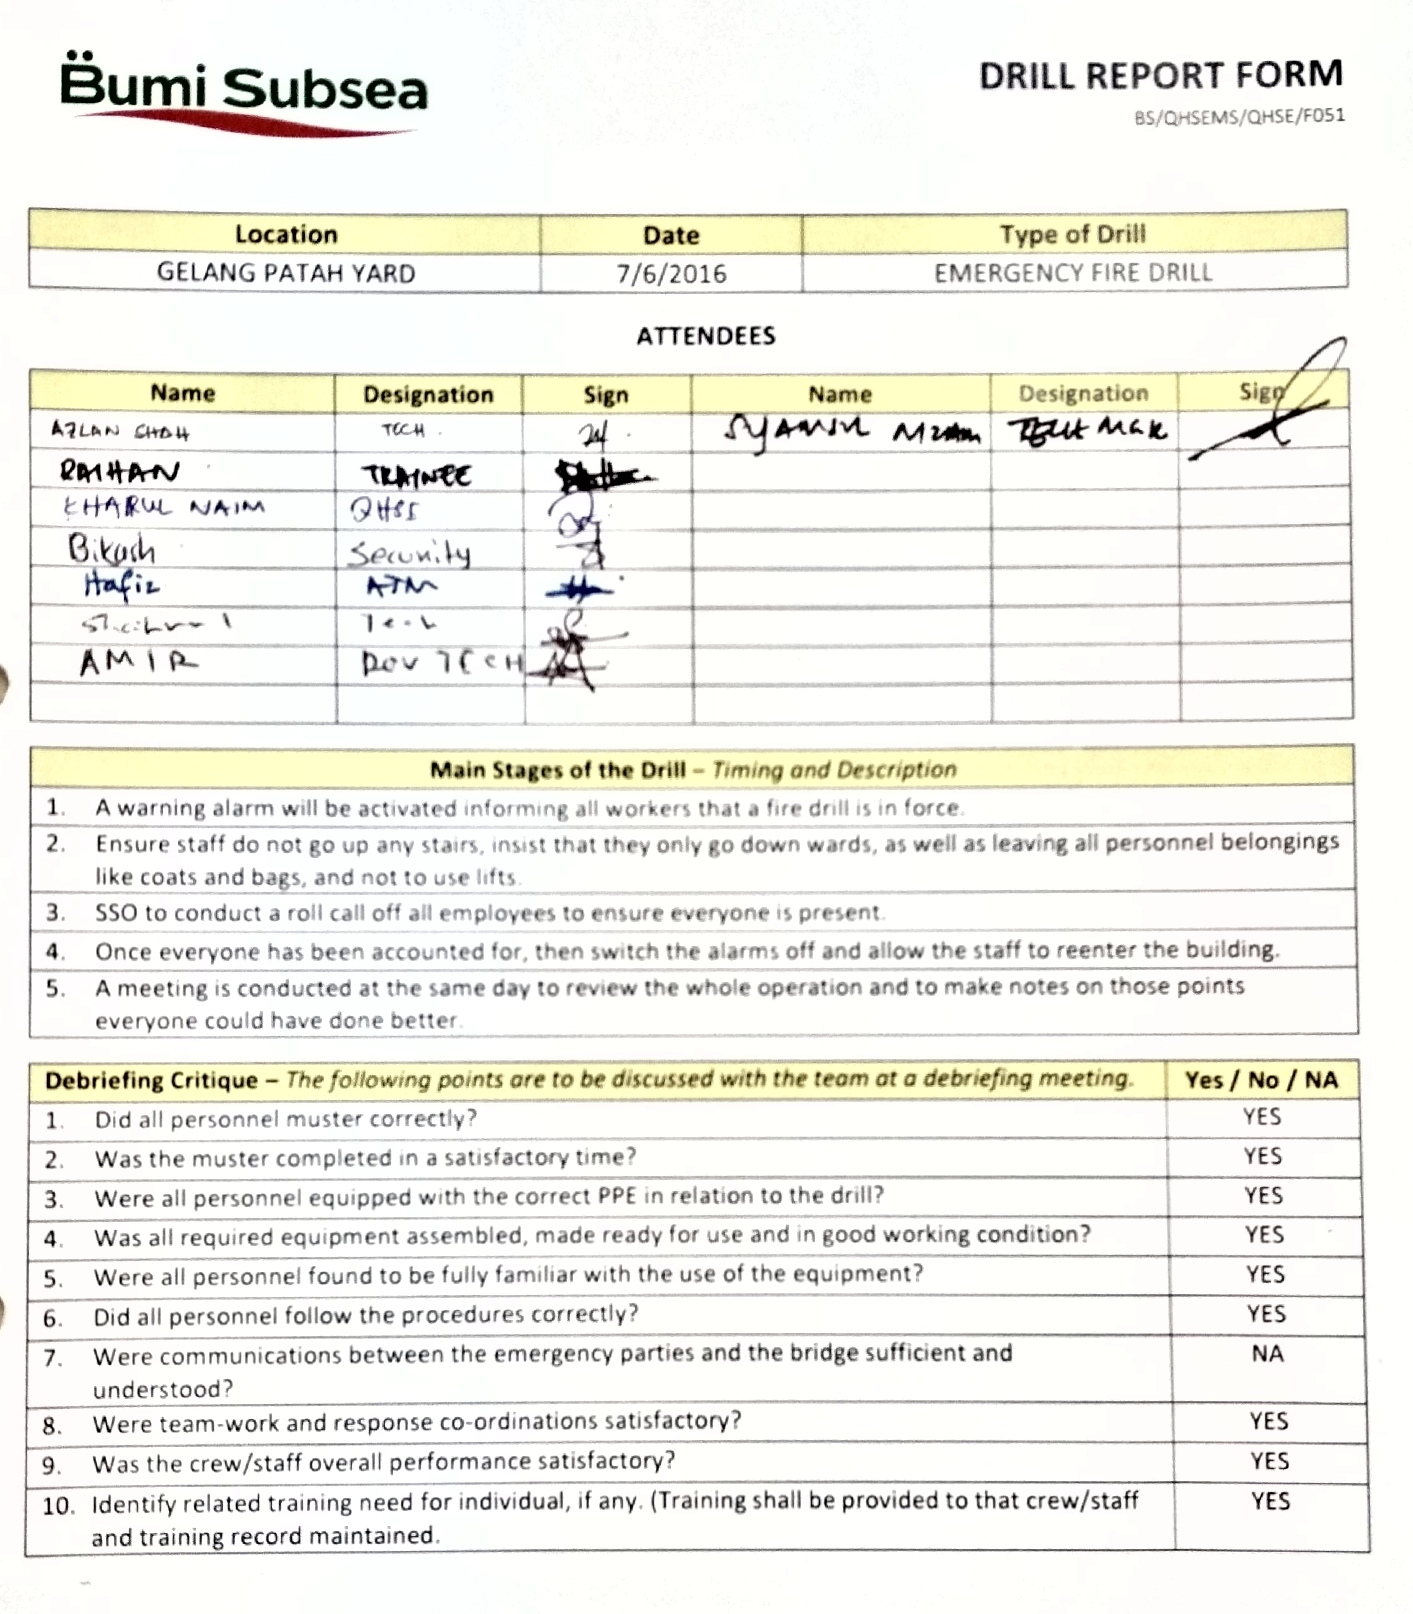 Bumi Subsea
DRILL REPORT FORM
BS/QHSEMS/QHSE/F051
Location Date Type of Drill
GELANG PATAH YARD 7/6/2016 EMERGENCY FIRE DRILL
ATTENDEES
Name Designation Sign Name Designation Sign
AZLAN SHAH TECH
RAIHAN TRAINEE
KHARUL NAIM QHSE
Bikash Security
Hafiz ATM
AMIR ROV TECH
Main Stages of the Drill – Timing and Description
1. A warning alarm will be activated informing all workers that a fire drill is in force.
2. Ensure staff do not go up any stairs, insist that they only go down wards, as well as leaving all personnel belongings
like coats and bags, and not to use lifts.
3. SSO to conduct a roll call off all employees to ensure everyone is present.
4. Once everyone has been accounted for, then switch the alarms off and allow the staff to reenter the building.
5. A meeting is conducted at the same day to review the whole operation and to make notes on those points
everyone could have done better.
Debriefing Critique – The following points are to be discussed with the team at a debriefing meeting. Yes / No / NA
1. Did all personnel muster correctly? YES
2. Was the muster completed in a satisfactory time? YES
3. Were all personnel equipped with the correct PPE in relation to the drill? YES
4. Was all required equipment assembled, made ready for use and in good working condition? YES
5. Were all personnel found to be fully familiar with the use of the equipment? YES
6. Did all personnel follow the procedures correctly? YES
7. Were communications between the emergency parties and the bridge sufficient and NA
understood?
8. Were team-work and response co-ordinations satisfactory? YES
9. Was the crew/staff overall performance satisfactory? YES
10. Identify related training need for individual, if any. (Training shall be provided to that crew/staff YES
and training record maintained.